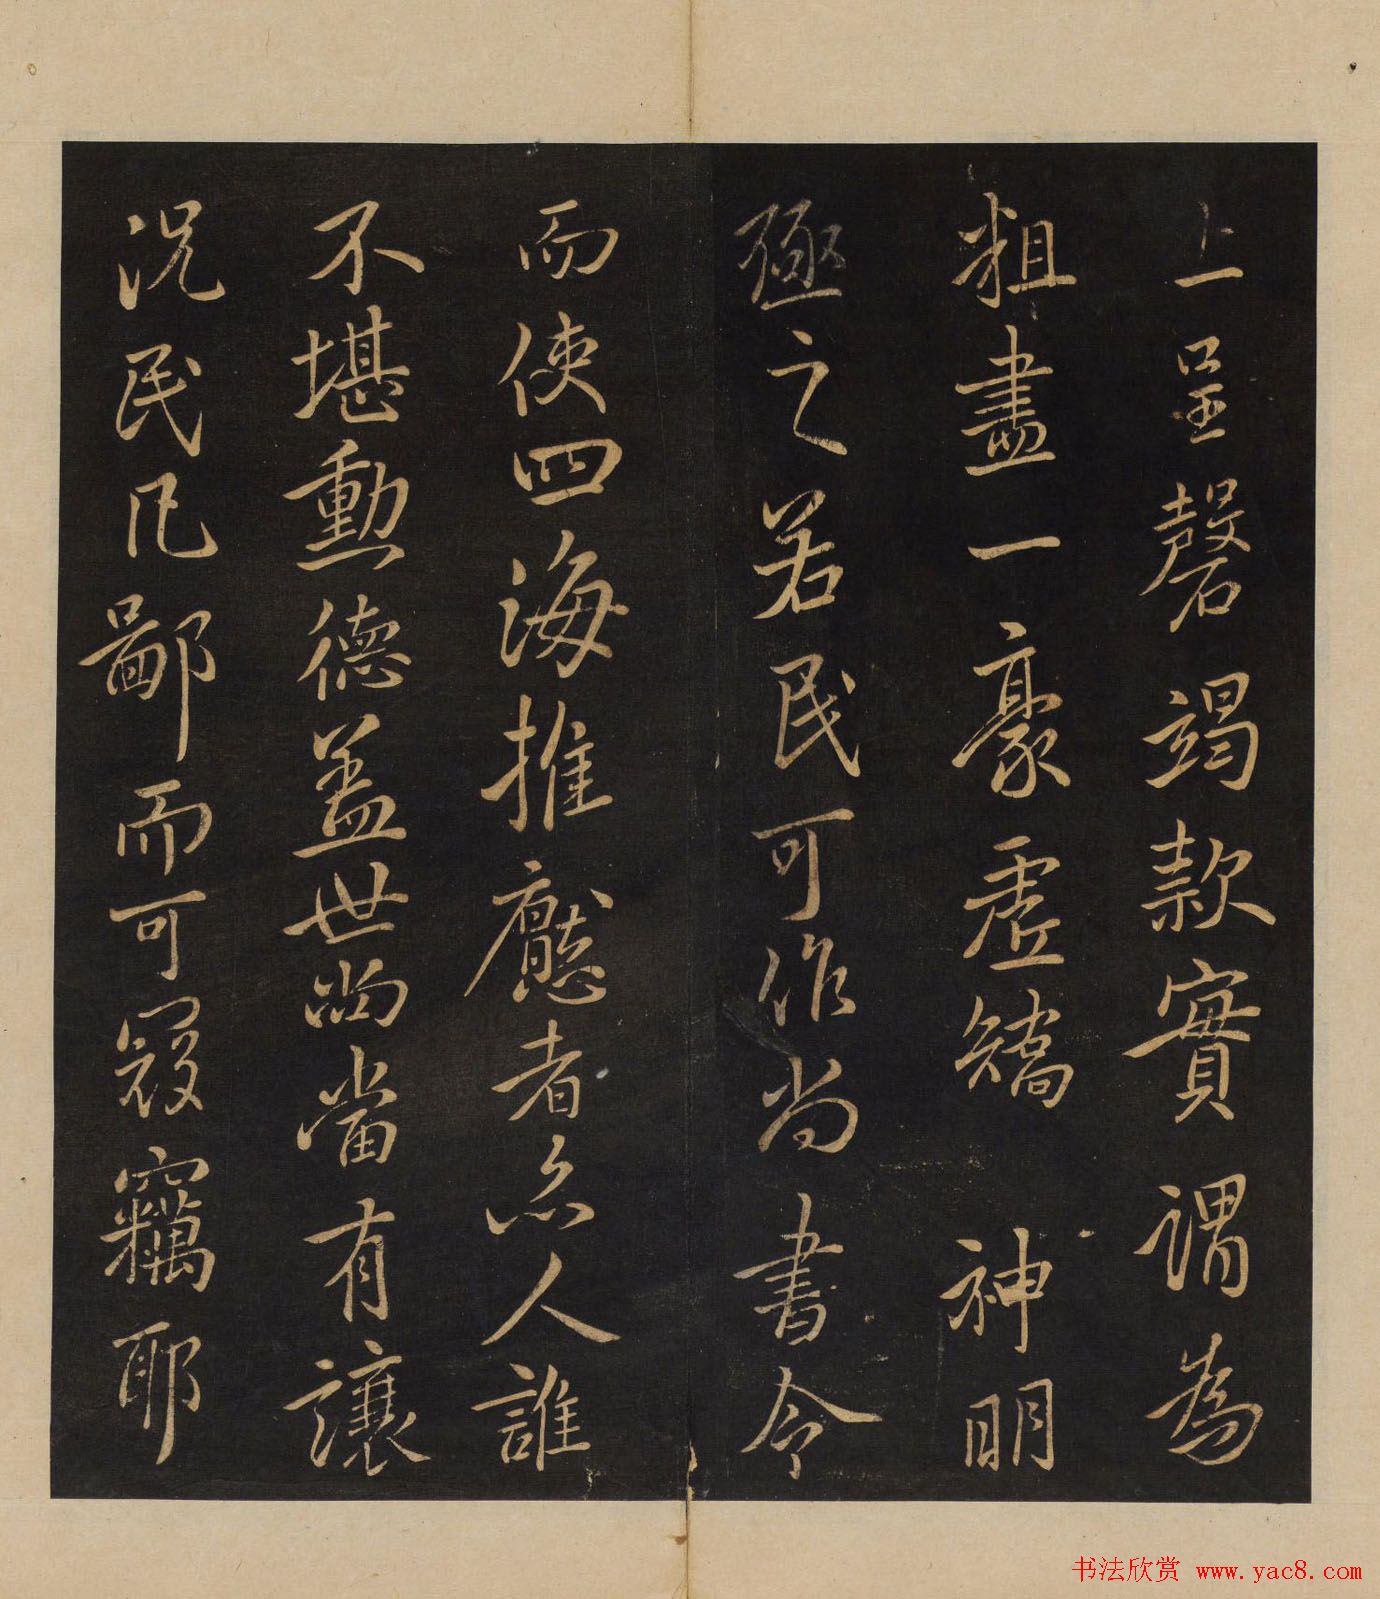 上呈磬竭款實謂為
粗盡一豪虛矯 神明
殛之若民可作尚書令
而使四海推懕者亦人誰
不堪勳德盖世尚當有讓
況民凡鄙而可寇竊耶
书法欣赏 www.yac8.com